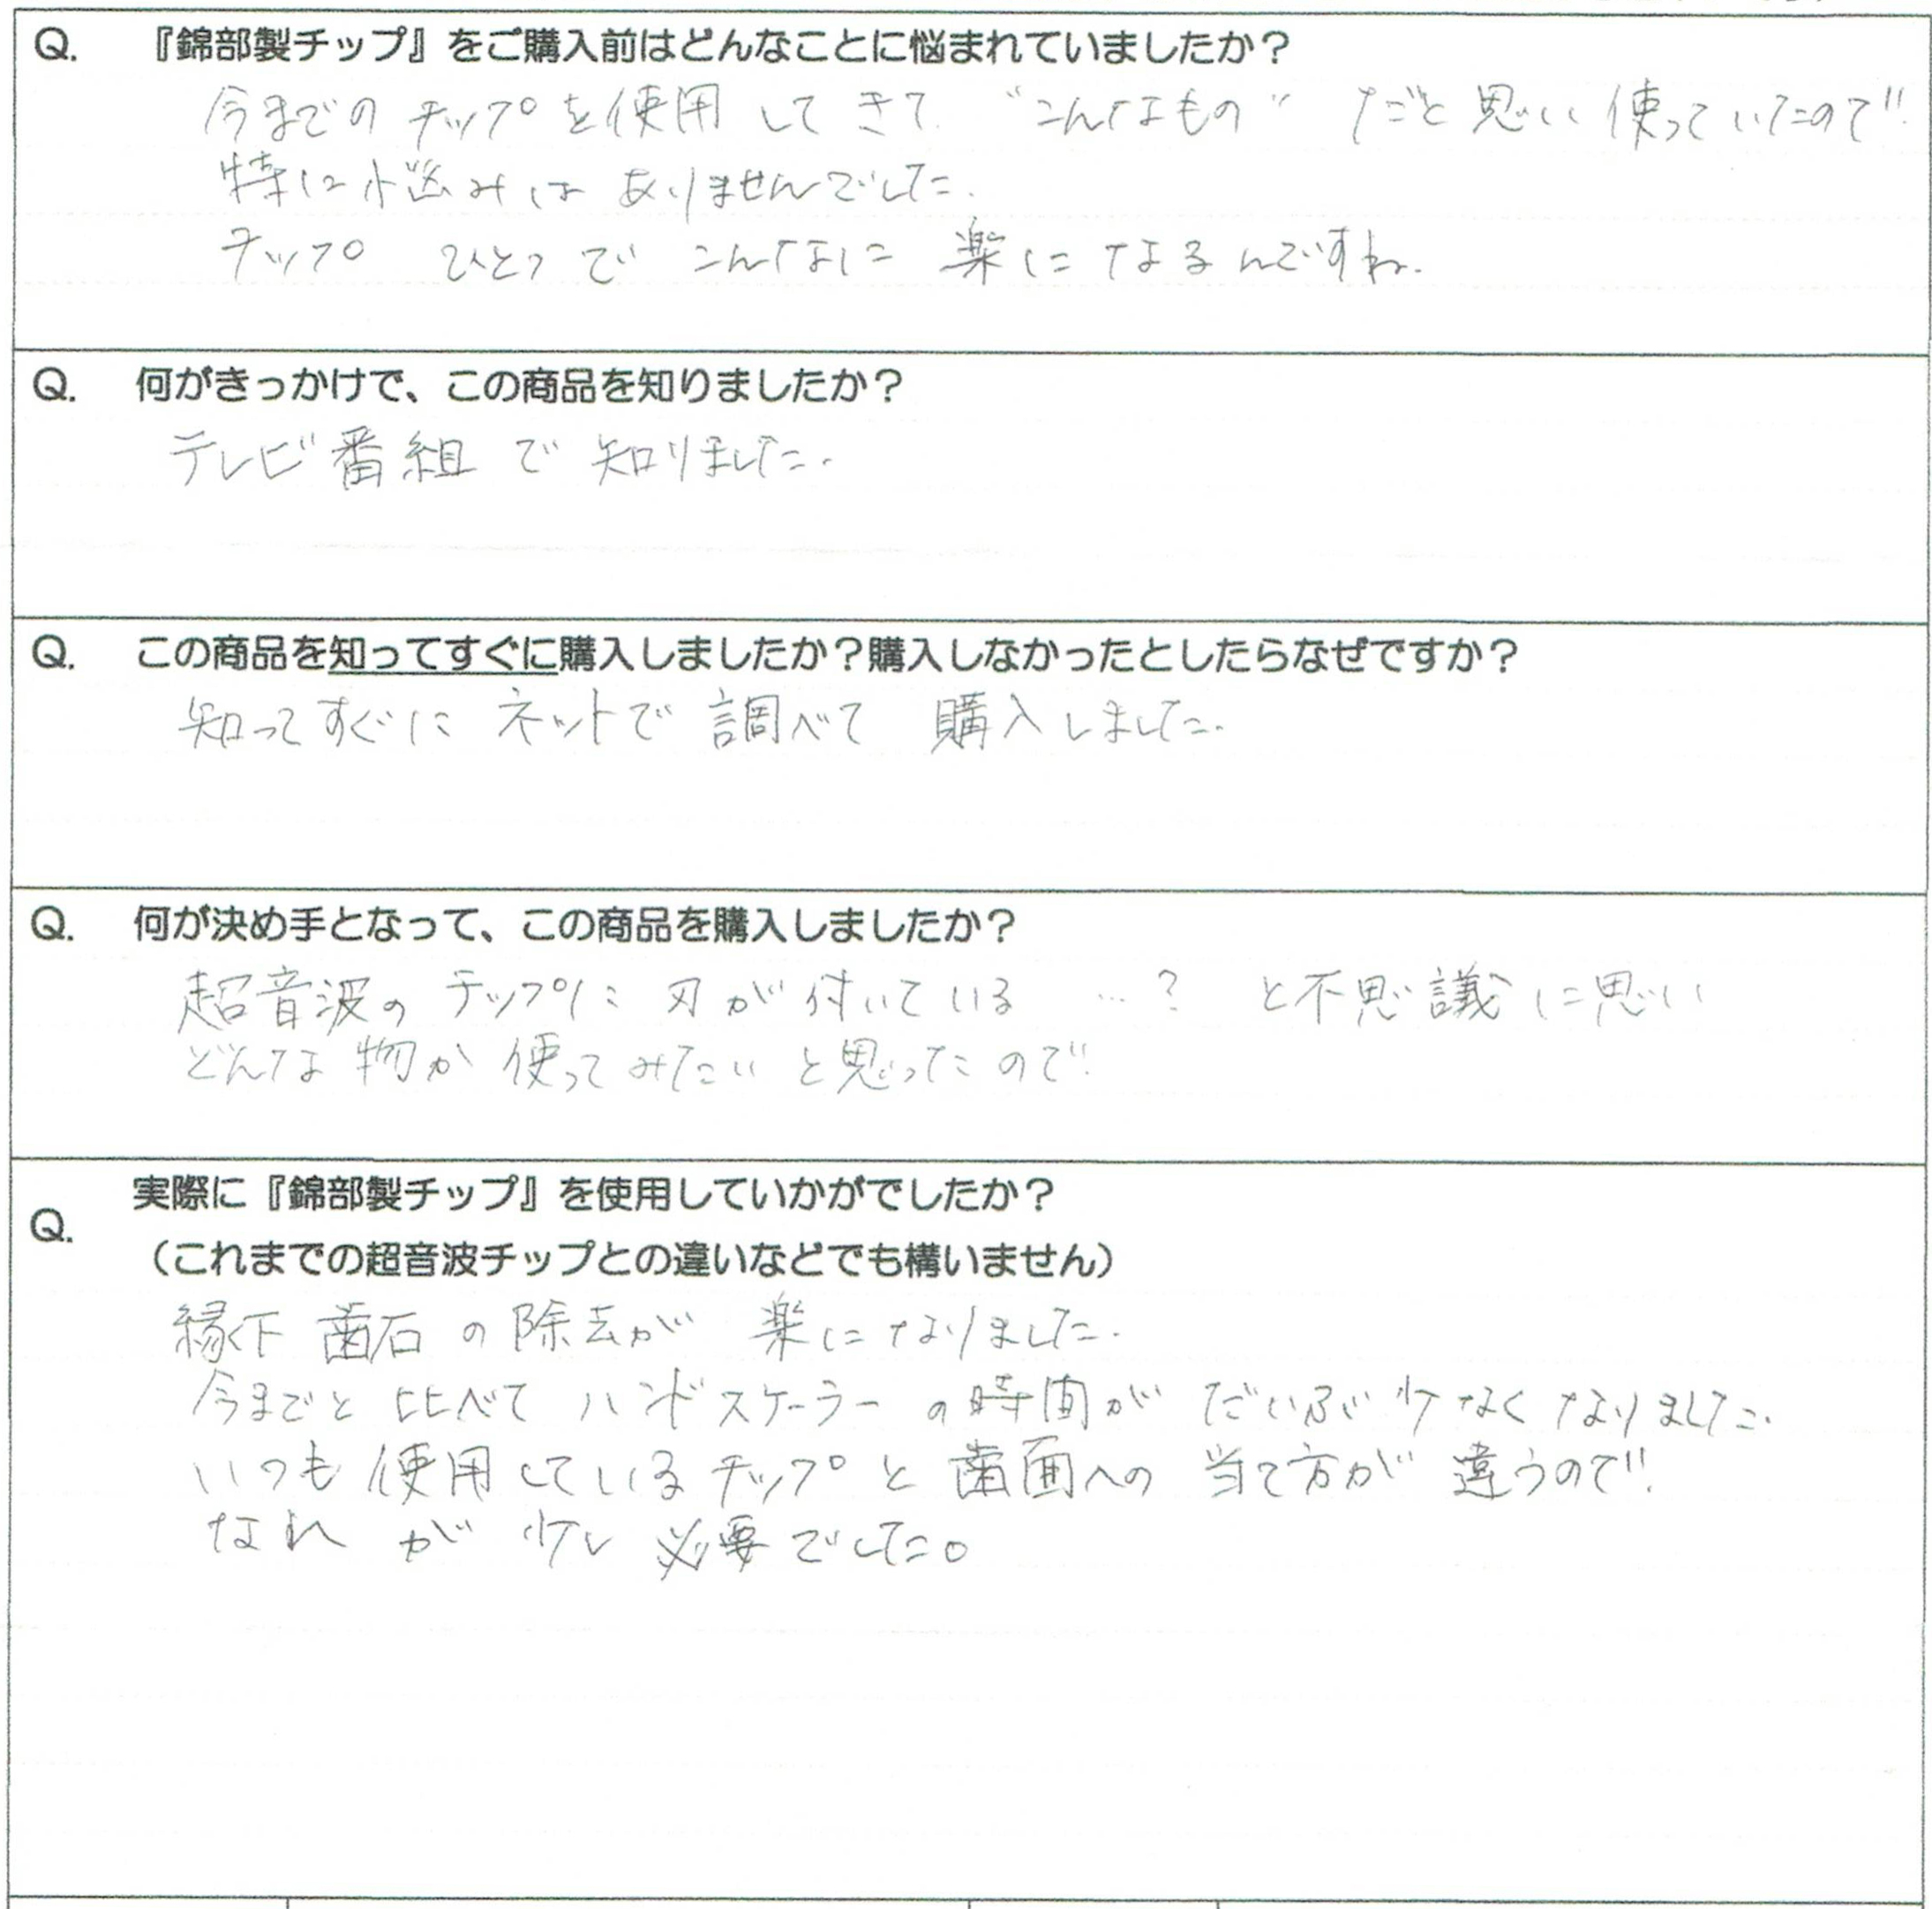 Q. 『錦部製チップ』をご購入前はどんなことに悩まれていましたか？
今までのチップを使用してきて "こんなもの" だと思い使っていたので
特に悩みはありませんでした.
チップ ひとつで こんなに 楽に なるんですね.
Q. 何がきっかけで、この商品を知りましたか？
テレビ番組で知りました.
Q. この商品を知ってすぐに購入しましたか？購入しなかったとしたらなぜですか？
知ってすぐに ネットで 調べて 購入しました.
Q. 何が決め手となって、この商品を購入しましたか？
超音波の チップに 刃が付いている …? と不思議に思い
どんな物か 使ってみたいと思ったので
Q. 実際に『錦部製チップ』を使用していかがでしたか？
（これまでの超音波チップとの違いなどでも構いません）
縁下 歯石の除去が 楽になりました.
今までと比べて ハンドスケーラーの時間が だいぶ少なくなりました.
いつも使用しているチップと歯面への 当て方が 違うので
なれ が 少し 必要でした。